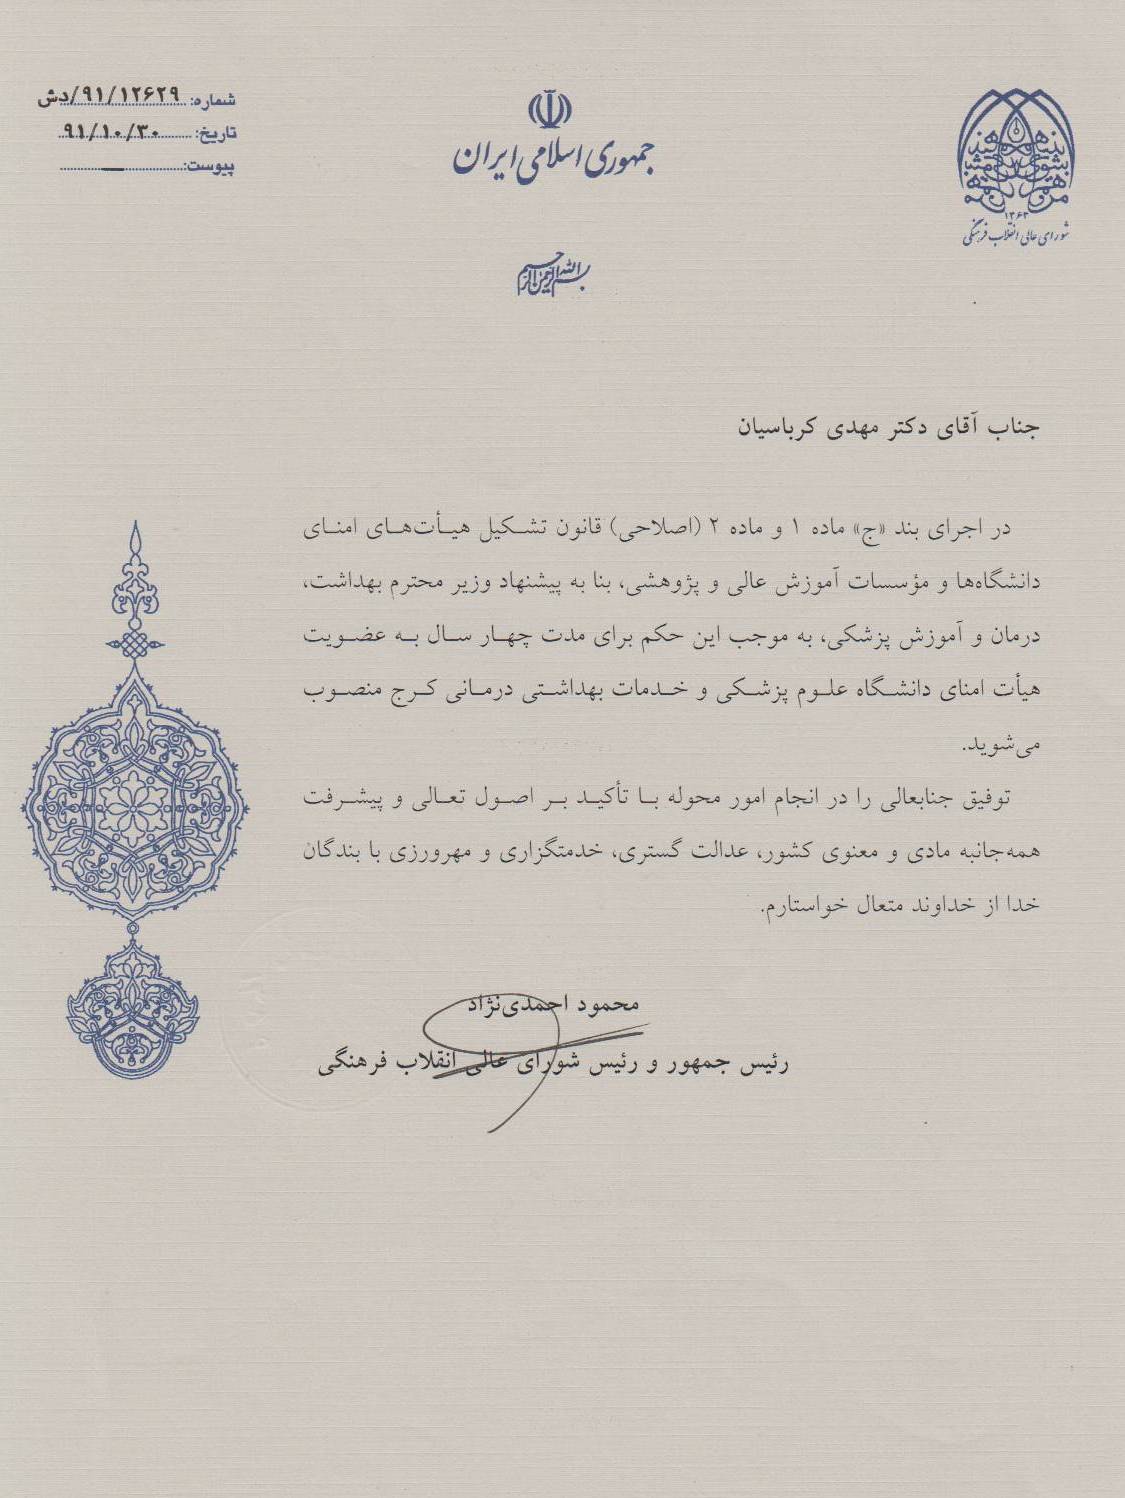 شماره: ۹۱/۱۲۶۲۹/دش
تاریخ: ۹۱/۱۰/۳۰
پیوست: ــ
جمهوری اسلامی ایران
۱۳۶۳
شورای عالی انقلاب فرهنگی
بسم الله الرحمن الرحیم
جناب آقای دکتر مهدی کرباسیان
در اجرای بند «ج» ماده ۱ و ماده ۲ (اصلاحی) قانون تشکیل هیأت‌های امنای
دانشگاه‌ها و مؤسسات آموزش عالی و پژوهشی، بنا به پیشنهاد وزیر محترم بهداشت،
درمان و آموزش پزشکی، به موجب این حکم برای مدت چهار سال به عضویت
هیأت امنای دانشگاه علوم پزشکی و خدمات بهداشتی درمانی کرج منصوب
می‌شوید.
توفیق جنابعالی را در انجام امور محوله با تأکید بر اصول تعالی و پیشرفت
همه‌جانبه مادی و معنوی کشور، عدالت گستری، خدمتگزاری و مهرورزی با بندگان
خدا از خداوند متعال خواستارم.
محمود احمدی‌نژاد
رئیس جمهور و رئیس شورای عالی انقلاب فرهنگی